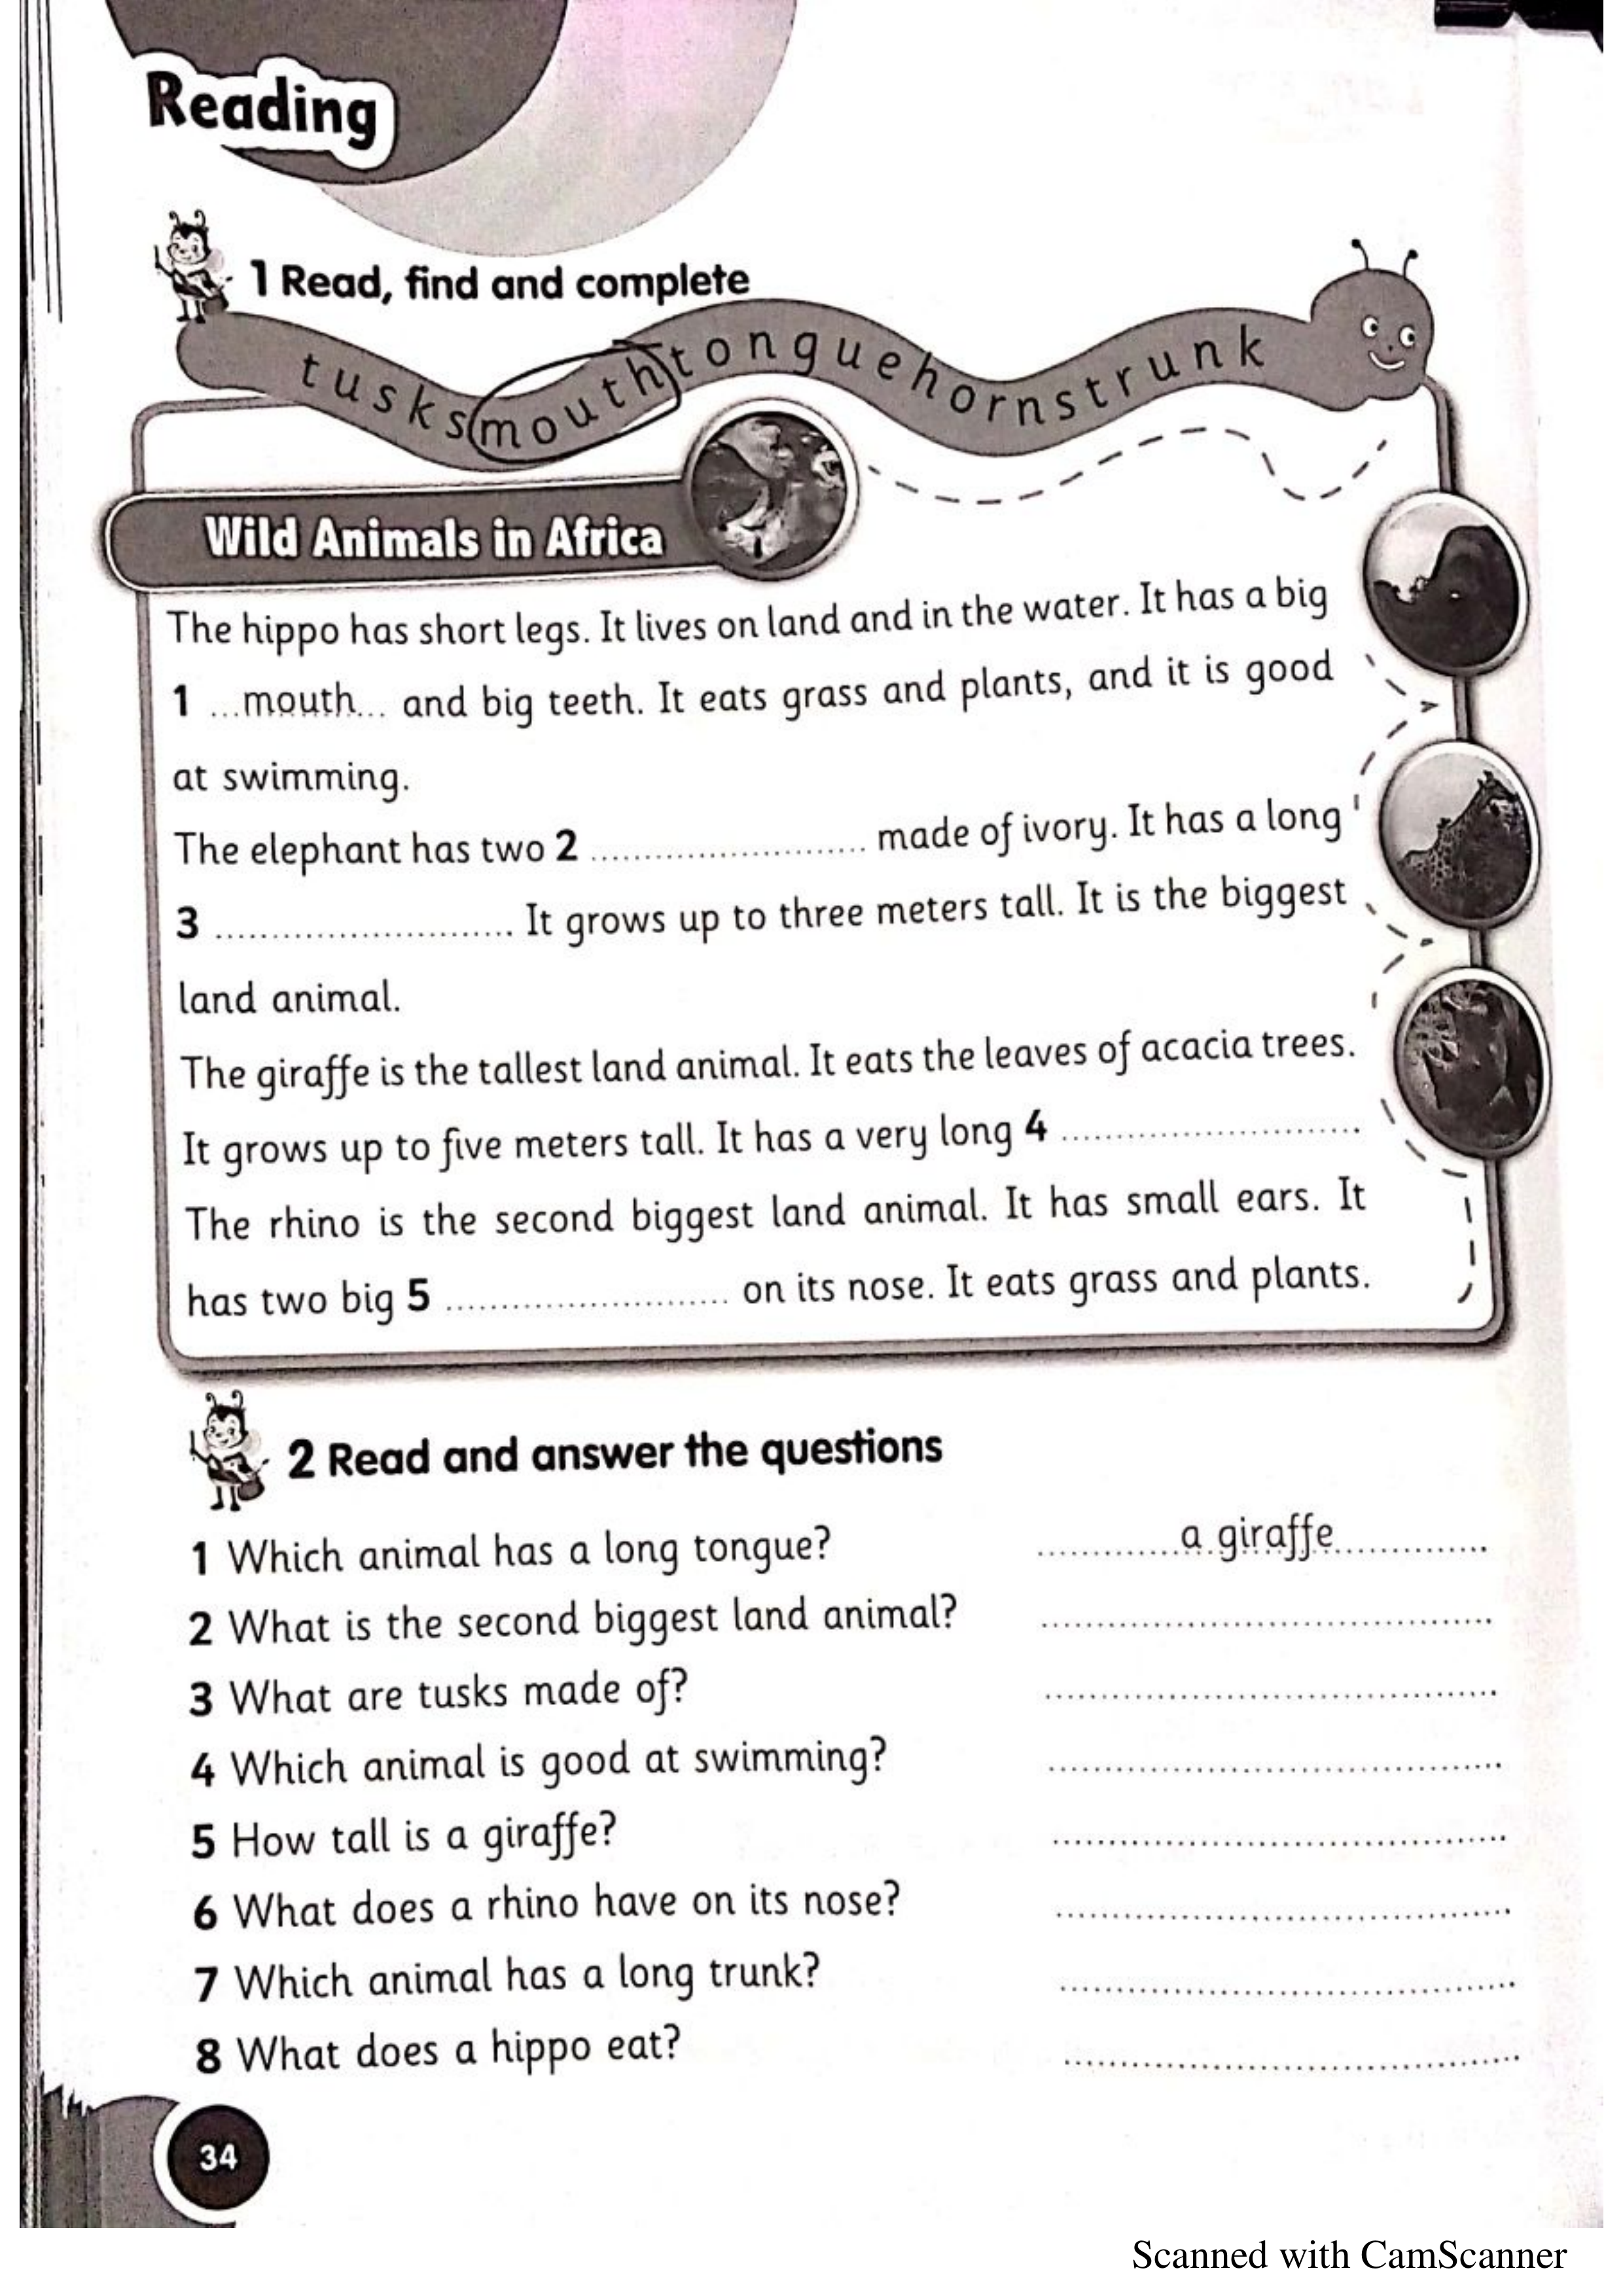 Reading
1 Read, find and complete
tusksmouthtonguehornstrunk
Wild Animals in Africa
The hippo has short legs. It lives on land and in the water. It has a big
1 ...mouth... and big teeth. It eats grass and plants, and it is good
at swimming.
The elephant has two 2 .......................... made of ivory. It has a long
3 ............................ It grows up to three meters tall. It is the biggest
land animal.
The giraffe is the tallest land animal. It eats the leaves of acacia trees.
It grows up to five meters tall. It has a very long 4 ............................
The rhino is the second biggest land animal. It has small ears. It
has two big 5 .......................... on its nose. It eats grass and plants.
2 Read and answer the questions
1 Which animal has a long tongue? .............a giraffe..............
2 What is the second biggest land animal? ..........................................
3 What are tusks made of? ..........................................
4 Which animal is good at swimming? ..........................................
5 How tall is a giraffe? ..........................................
6 What does a rhino have on its nose? ..........................................
7 Which animal has a long trunk? ..........................................
8 What does a hippo eat? ..........................................
34
Scanned with CamScanner